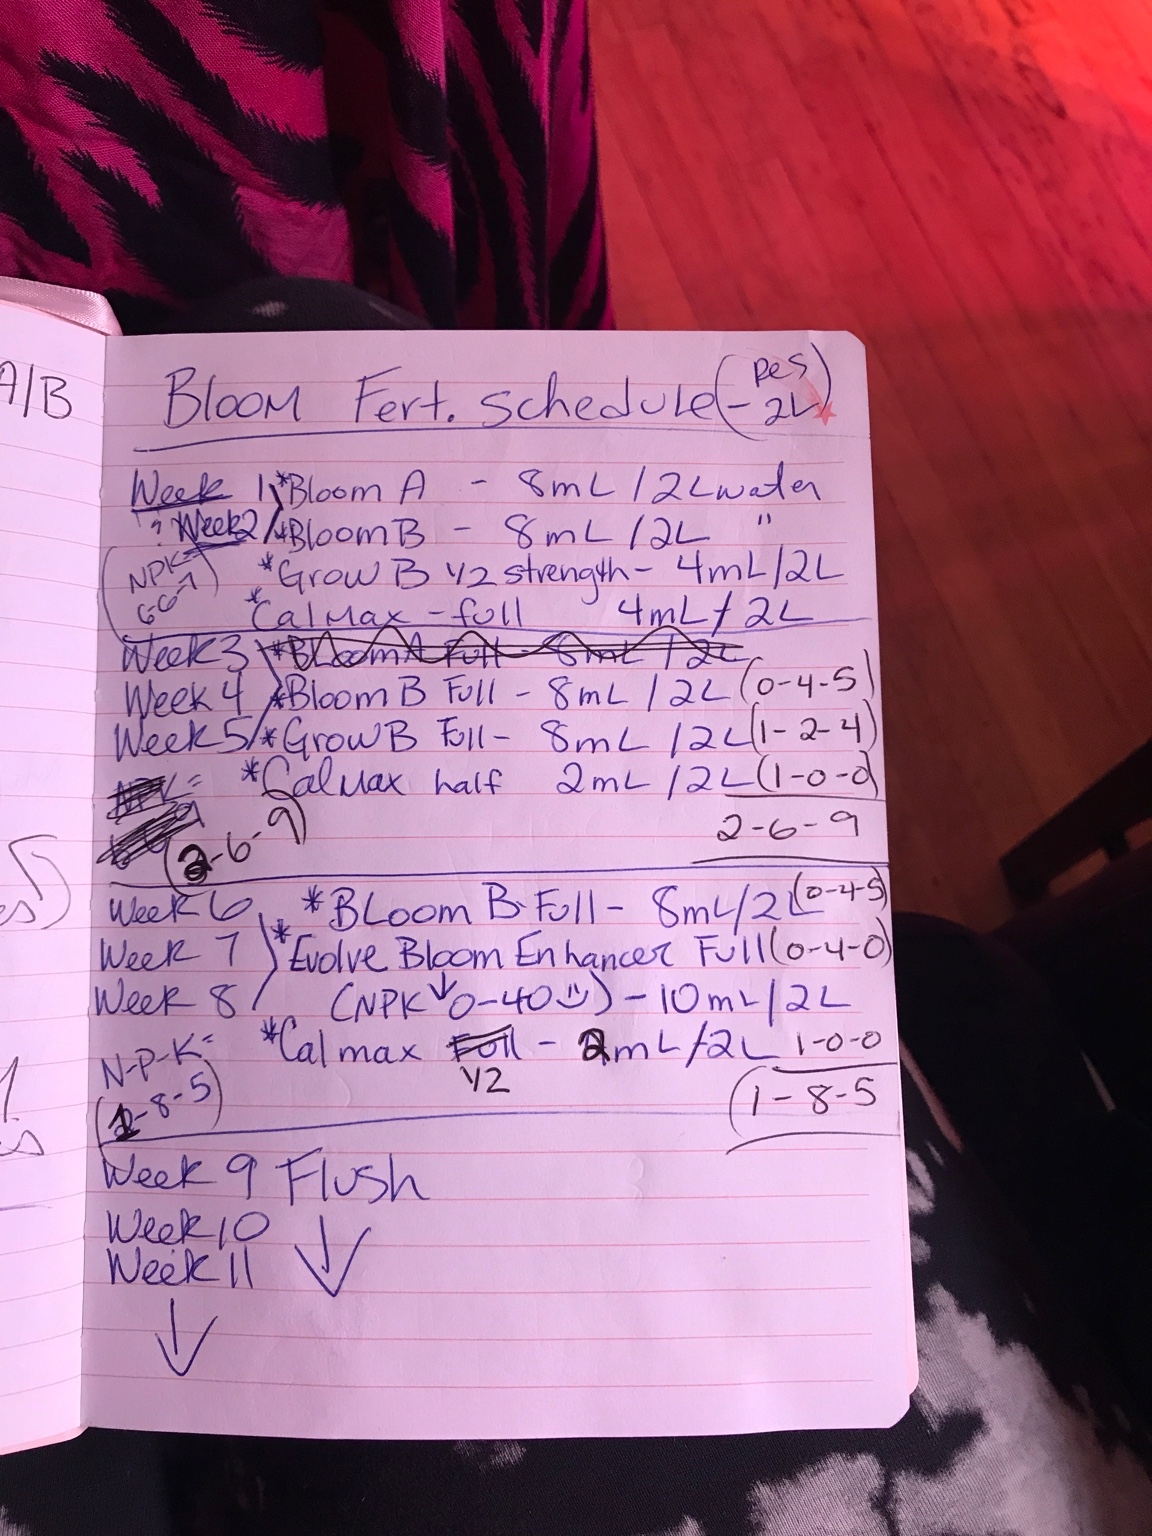 A/B
Bloom Fert. schedule (Res - 2L)
Week 1 *Bloom A - 8mL / 2L water
? Week2 *Bloom B - 8mL / 2L "
(NPK= 6-6-7) *Grow B 1/2 strength - 4mL/2L
*CalMax - full 4mL / 2L
Week 3 *Bloom A Full - 8mL / 2L
Week 4 *Bloom B Full - 8mL / 2L (0-4-5)
Week 5 *Grow B Full - 8mL / 2L (1-2-4)
NPK= *CalMax half 2mL / 2L (1-0-0)
(2-6-9) 2-6-9
Week 6 *Bloom B Full - 8mL/2L (0-4-5)
Week 7 *Evolve Bloom Enhancer Full (0-4-0)
Week 8 (NPK ↓ 0-40 :)) - 10mL/2L
N-P-K= *Calmax Full 1/2 - 2mL/2L 1-0-0
(1-8-5) (1-8-5)
Week 9 Flush
Week 10
Week 11